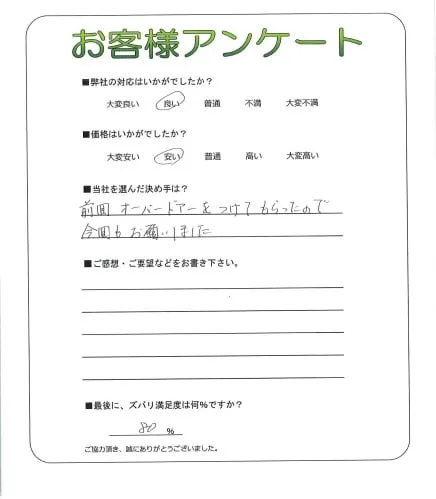 お客様アンケート
■弊社の対応はいかがでしたか?
大変良い 良い 普通 不満 大変不満
■価格はいかがでしたか?
大変安い 安い 普通 高い 大変高い
■当社を選んだ決め手は?
前回 オーバードアーをつけてもらったので
今回もお願いしました
■ご感想・ご要望などをお書き下さい。
■最後に、ズバリ満足度は何%ですか?
80 %
ご協力頂き、誠にありがとうございました。